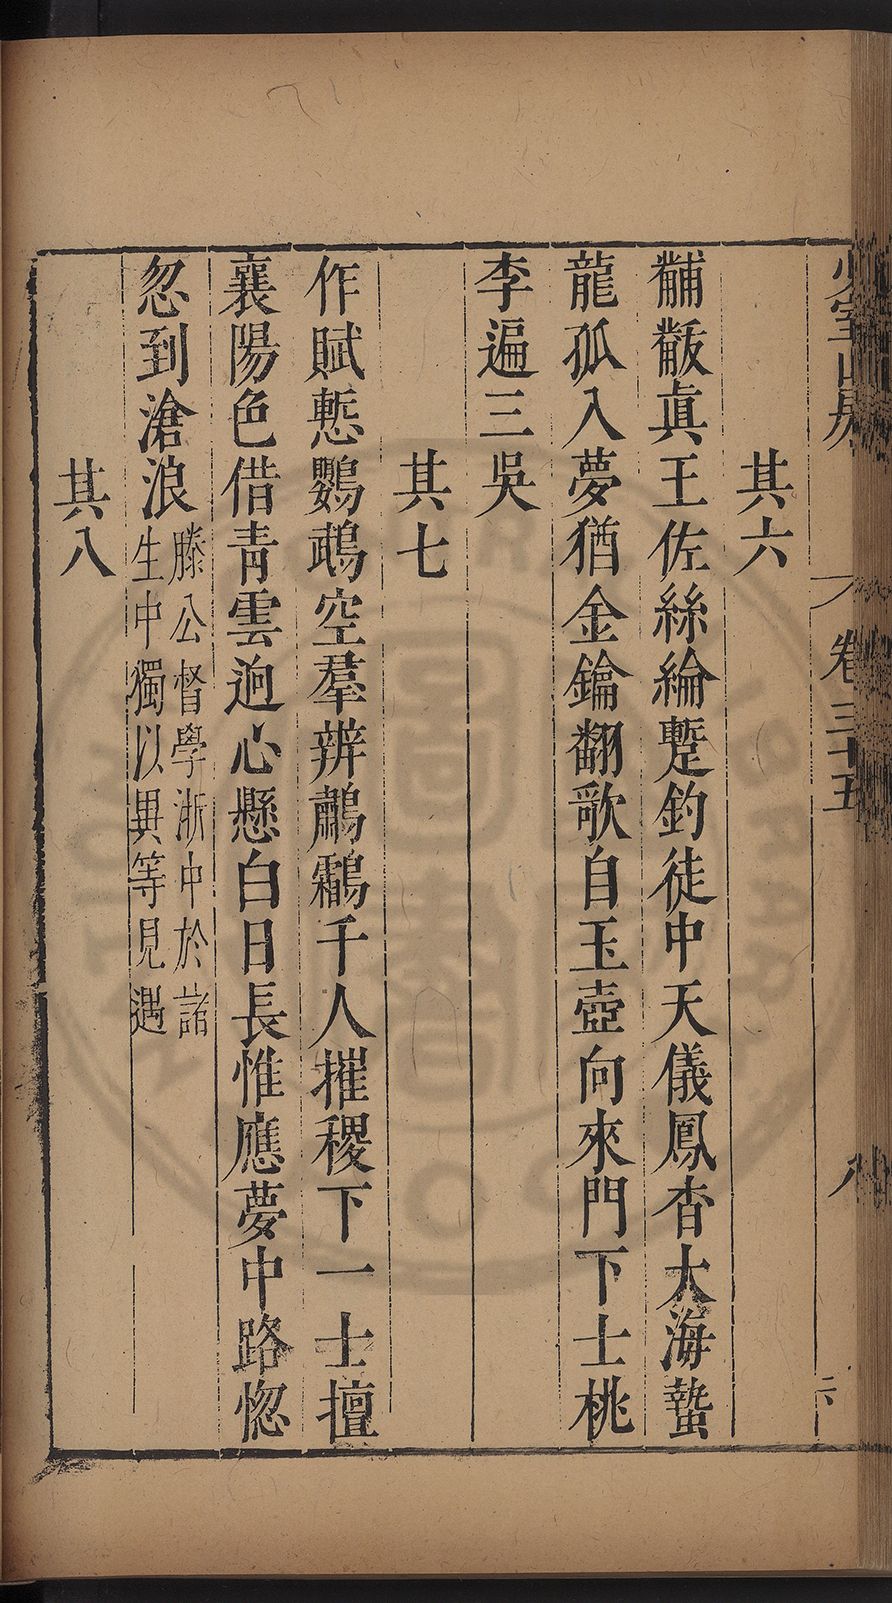 少室山房　卷三十五　八
其六
黼黻眞王佐絲綸蹔釣徒中天儀鳳杳大海蟄
龍孤入夢猶金鑰翻歌自玉壺向來門下士桃
李遍三吳
其七
作賦慙鸚鵡空羣辨鷫鸘千人摧稷下一士擅
襄陽色借青雲迥心懸白日長惟應夢中路惚
忽到滄浪
滕公督學浙中於諸
生中獨以異等見遇
其八